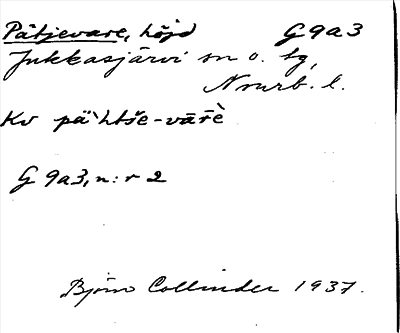 Pätjevare, höjd G 9 a 3
Jukkasjärvi sn o. tg,
Norrb. l.
Kv pä`htše-vārè
G 9a3, n:r 2
Björn Collinder 1937.